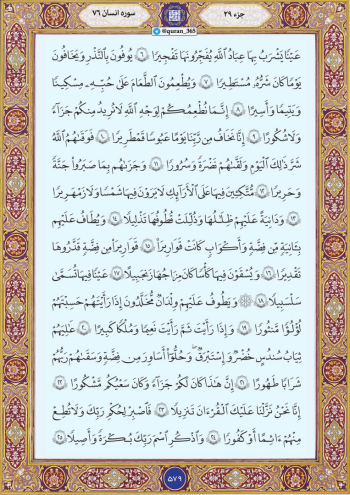 جزء ۲۹
سوره انسان ۷۶
@quran_365
عَيْنًا يَشْرَبُ بِهَا عِبَادُ اللَّهِ يُفَجِّرُونَهَا تَفْجِيرًا ۶ يُوفُونَ بِالنَّذْرِ وَيَخَافُونَ
يَوْمًا كَانَ شَرُّهُ مُسْتَطِيرًا ۷ وَيُطْعِمُونَ الطَّعَامَ عَلَىٰ حُبِّهِ مِسْكِينًا
وَيَتِيمًا وَأَسِيرًا ۸ إِنَّمَا نُطْعِمُكُمْ لِوَجْهِ اللَّهِ لَا نُرِيدُ مِنكُمْ جَزَاءً
وَلَا شُكُورًا ۹ إِنَّا نَخَافُ مِن رَّبِّنَا يَوْمًا عَبُوسًا قَمْطَرِيرًا ۱۰ فَوَقَاهُمُ اللَّهُ
شَرَّ ذَٰلِكَ الْيَوْمِ وَلَقَّاهُمْ نَضْرَةً وَسُرُورًا ۱۱ وَجَزَاهُم بِمَا صَبَرُوا جَنَّةً
وَحَرِيرًا ۱۲ مُّتَّكِئِينَ فِيهَا عَلَى الْأَرَائِكِ لَا يَرَوْنَ فِيهَا شَمْسًا وَلَا زَمْهَرِيرًا
۱۳ وَدَانِيَةً عَلَيْهِمْ ظِلَالُهَا وَذُلِّلَتْ قُطُوفُهَا تَذْلِيلًا ۱۴ وَيُطَافُ عَلَيْهِم
بِآنِيَةٍ مِّن فِضَّةٍ وَأَكْوَابٍ كَانَتْ قَوَارِيرَا ۱۵ قَوَارِيرَ مِن فِضَّةٍ قَدَّرُوهَا
تَقْدِيرًا ۱۶ وَيُسْقَوْنَ فِيهَا كَأْسًا كَانَ مِزَاجُهَا زَنجَبِيلًا ۱۷ عَيْنًا فِيهَا تُسَمَّىٰ
سَلْسَبِيلًا ۱۸ ۞ وَيَطُوفُ عَلَيْهِمْ وِلْدَانٌ مُّخَلَّدُونَ إِذَا رَأَيْتَهُمْ حَسِبْتَهُمْ
لُؤْلُؤًا مَّنثُورًا ۱۹ وَإِذَا رَأَيْتَ ثَمَّ رَأَيْتَ نَعِيمًا وَمُلْكًا كَبِيرًا ۲۰ عَالِيَهُمْ
ثِيَابُ سُندُسٍ خُضْرٌ وَإِسْتَبْرَقٌ ۖ وَحُلُّوا أَسَاوِرَ مِن فِضَّةٍ وَسَقَاهُمْ رَبُّهُمْ
شَرَابًا طَهُورًا ۲۱ إِنَّ هَٰذَا كَانَ لَكُمْ جَزَاءً وَكَانَ سَعْيُكُم مَّشْكُورًا ۲۲
إِنَّا نَحْنُ نَزَّلْنَا عَلَيْكَ الْقُرْآنَ تَنزِيلًا ۲۳ فَاصْبِرْ لِحُكْمِ رَبِّكَ وَلَا تُطِعْ
مِنْهُمْ آثِمًا أَوْ كَفُورًا ۲۴ وَاذْكُرِ اسْمَ رَبِّكَ بُكْرَةً وَأَصِيلًا ۲۵
۵۷۹